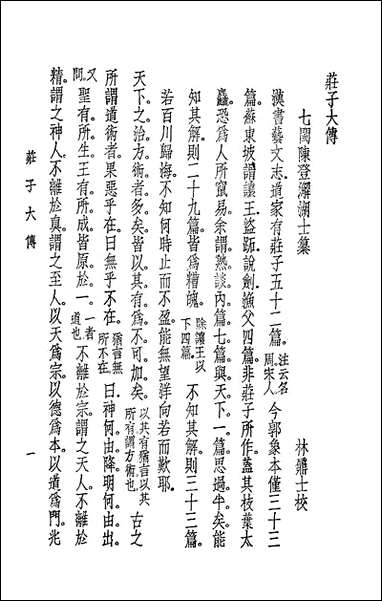 莊子大傳
七閩陳登澥瀾士纂　林鼎士校
漢書藝文志。道家有莊子五十二篇。注云名周宋人。今郭象本僅三十三
篇。蘇東坡謂讓王盜跖說劍漁父四篇。非莊子所作。蓋其枝葉太
麤。恐爲人所竄易。余謂熟讀內篇七篇。與天下一篇。思過半矣。能
知其解。則二十九篇。皆爲糟魄。除讓王以下四篇。不知其解。則三十三篇。
若百川歸海。不知何時止而不盈。能無望洋向若而歎耶。
天下之治方術者多矣。皆以其有爲不可加矣。以其有猶言以其所有謂方術也。古之
所謂道術者。果惡乎在。曰無乎不在。猶言無所不在。曰神何由降。明何由出。
又問。聖有所生。王有所成。皆原於一。一者道也。不離於宗。謂之天人。不離於
精。謂之神人。不離於眞。謂之至人。以天爲宗。以德爲本。以道爲門。兆
莊子大傳　一